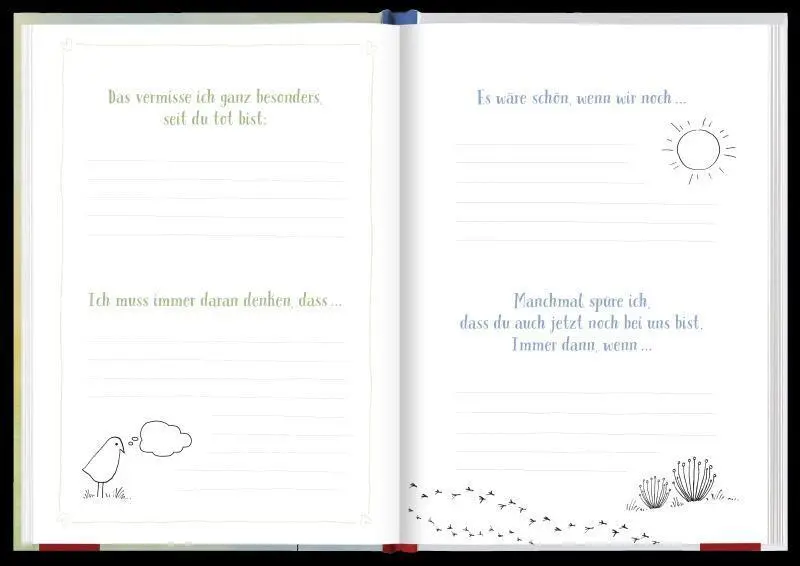 Das vermisse ich ganz besonders,
seit du tot bist:
Ich muss immer daran denken, dass ...
Es wäre schön, wenn wir noch ...
Manchmal spüre ich,
dass du auch jetzt noch bei uns bist.
Immer dann, wenn ...